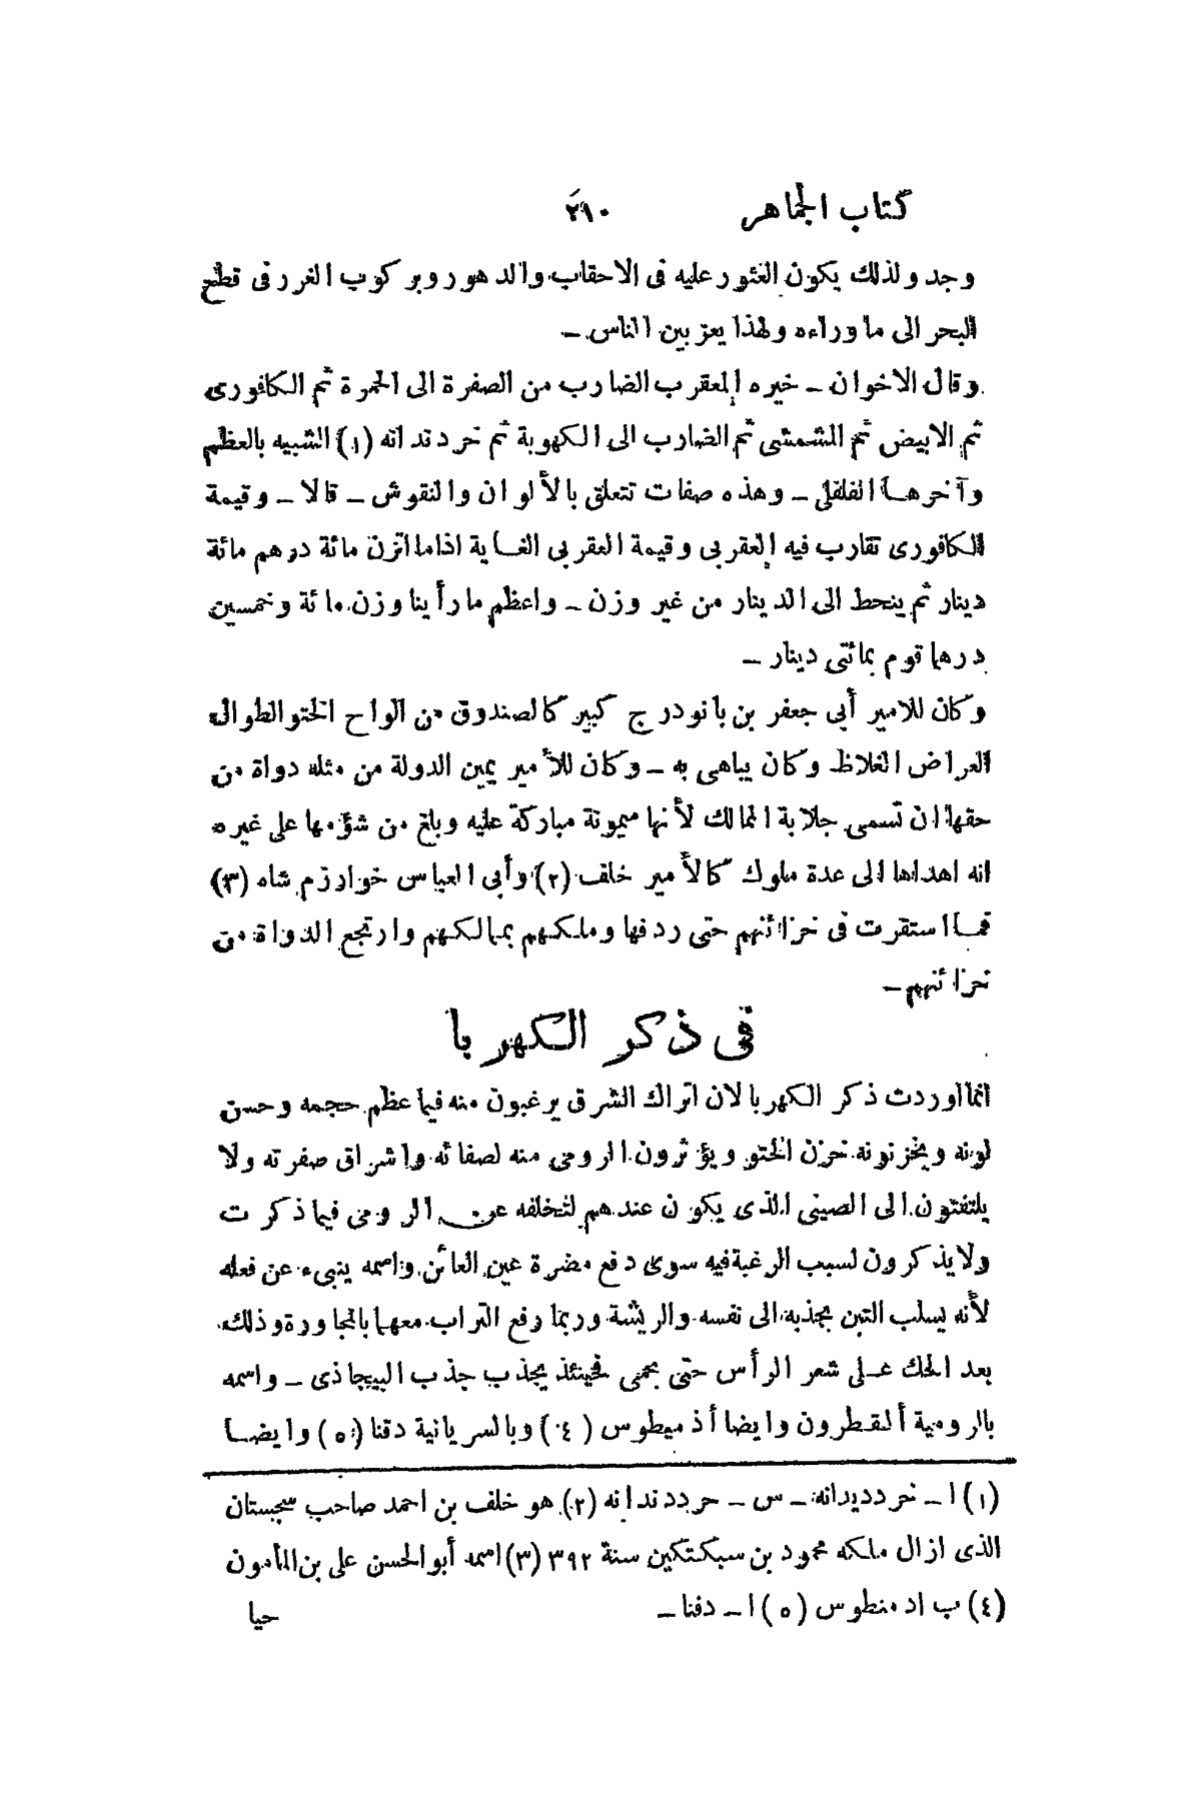 كتاب الجماهر ٢١٠
وجد ولذلك يكون العثور عليه فى الاحقاب والدهور وبركوب الغرر فى قطع
البحر الى ما وراءه ولهذا يعز بين الناس –
وقال الاخوان – خيره المعقرب الضارب من الصفرة الى الحمرة ثم الكافورى
ثم الابيض ثم المشمشى ثم الضارب الى الكهوبة ثم خرد ندانه (١) الشبيه بالعظم
وآخرها الفلفلى – وهذه صفات تتعلق بالألوان والنقوش – قالا – وقيمة
الكافورى تقارب فيه العقربى وقيمة العقربى الغاية اذا ما اتزن مائة درهم مائة
دينار ثم ينحط الى الدينار من غير وزن – واعظم ما رأينا وزن مائة وخمسين
درهما قوم بمائتى دينار –
وكان للامير أبى جعفر بن بانو درج كبير كالصندوق من الواح الختو الطوال
العراض الغلاظ وكان يباهى به – وكان للأمير يمين الدولة من مثله دواة من
حقها ان تسمى جلابة الممالك لأنها ميمونة مباركة عليه وبلغ من شؤمها على غيره
انه اهداها الى عدة ملوك كالأمير خلف (٢) وأبى العباس خوارزم شاه (٣)
فما استقرت فى خزائنهم حتى ردفها وملكهم بممالكهم وارتجع الدواة من
خزائنهم –
فى ذكر الكهربا
انما اوردت ذكر الكهربا لان اتراك الشرق يرغبون منه فيما عظم حجمه وحسن
لونه ويخزنونه خزن الختو ويؤثرون الرومى منه لصفائه واشراق صفرته ولا
يلتفتون الى الصينى الذى يكون عندهم لتخلفه عن الرومى فيما ذكرت
ولا يذكرون لسبب الرغبة فيه سوى دفع مضرة عين العائن واسمه ينبىء عن فعله
لأنه يسلب التبن بجذبه الى نفسه والريشة وربما رفع التراب معهما بالمجاورة وذلك
بعد الحك على شعر الرأس حتى يحمى فحينئذ يجذب جذب البيجاذى – واسمه
بالرومية ألقطرون وايضا أذميطوس (٤) وبالسريانية دقنا (٥) وايضا
(١) ا – خرددیدانه – س – حرددندانه (٢) هو خلف بن احمد صاحب سجستان
الذى ازال ملكه محمود بن سبكتكين سنة ٣٩٢ (٣) اسمه أبوالحسن على بن المأمون
(٤) ب اد منطوس (٥) ا – دفنا – حيا